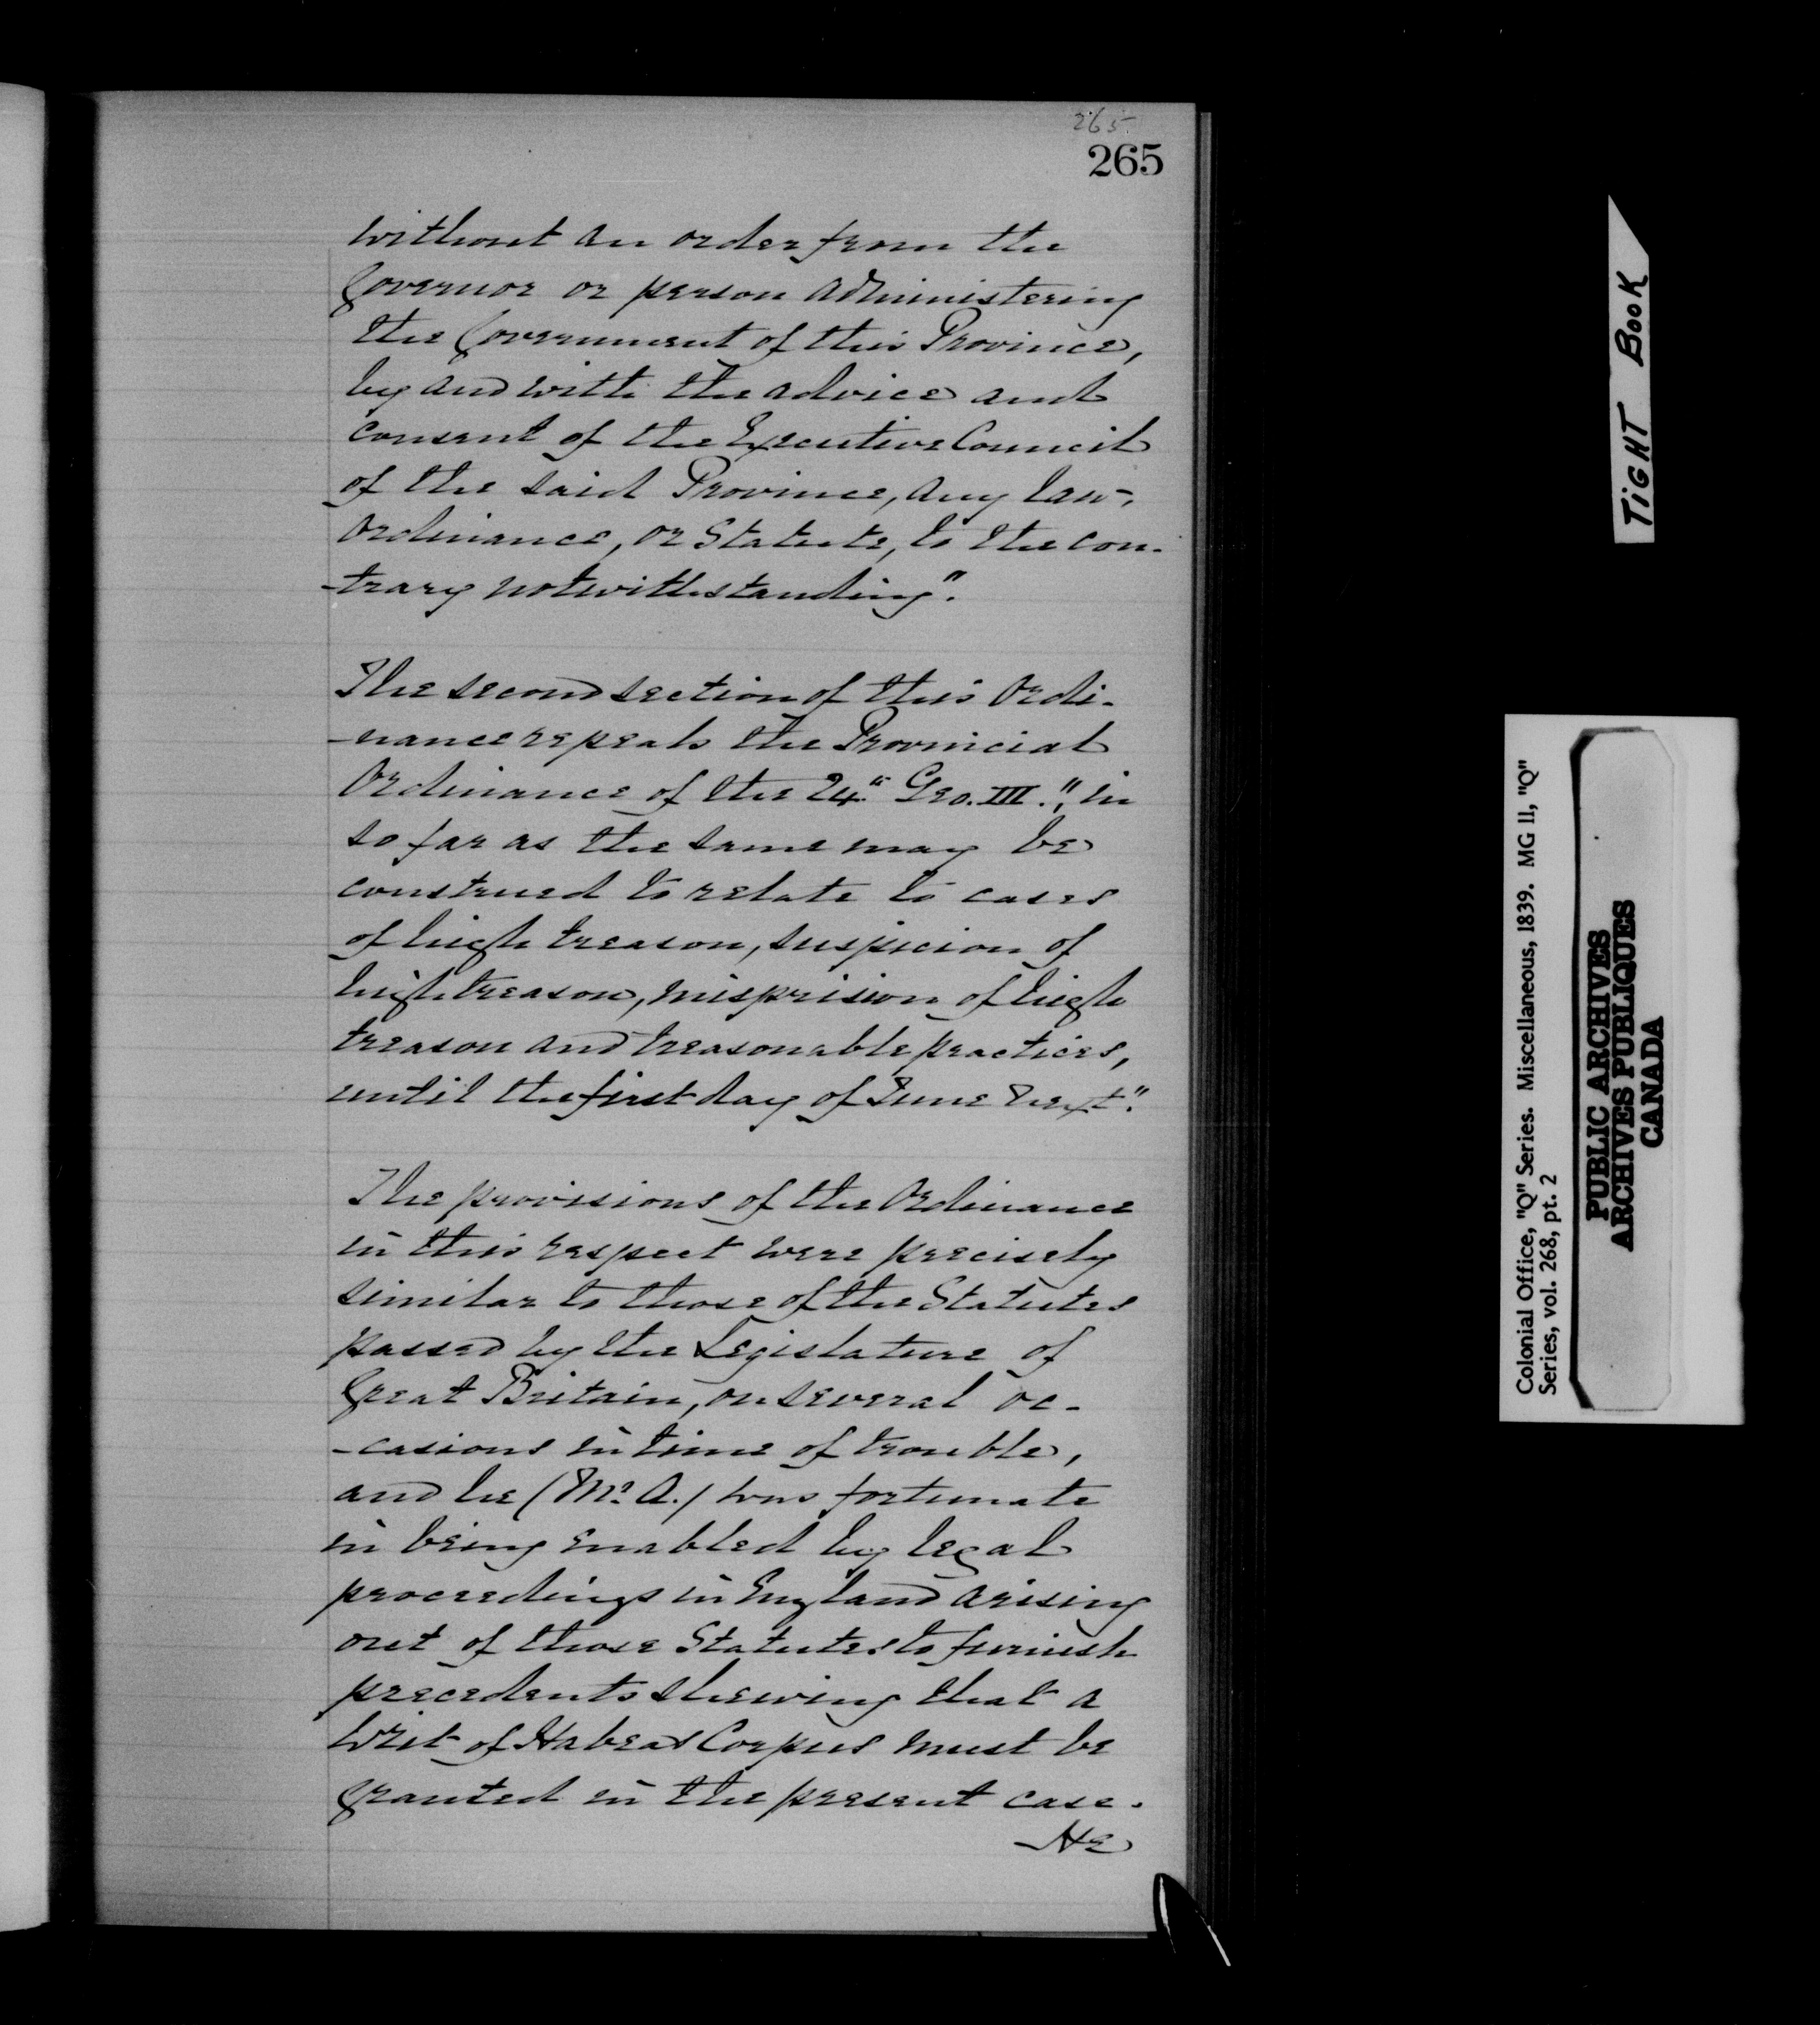 265.
265
without an order from the
Governor or person administering
the Government of this Province,
by and with the advice and
consent of the Executive Council
of the said Province, any law,
Ordinance, or Statute, to the con-
-trary notwithstanding".
The second section of this Ordi-
-nance repeals the Provincial
Ordinance of the 24" Geo. III.", in
so far as the same may be
construed to relate to cases
of high treason, suspicion of
high treason, misprision of high
treason and treasonable practices,
until the first day of June next."
The provisions of the Ordinance
in this respect were precisely
similar to those of the Statutes
passed by the Legislature of
Great Britain, on several oc-
-casions in time of trouble,
and he (Mr. A.) was fortunate
in being enabled by legal
proceedings in England arising
out of those Statutes to furnish
precedents shewing that a
Writ of Habeas Corpus must be
granted in the present case.
He
TIGHT BOOK
Colonial Office, "Q" Series. Miscellaneous, 1839. MG 11, "Q"
Series, vol. 268, pt. 2
PUBLIC ARCHIVES
ARCHIVES PUBLIQUES
CANADA